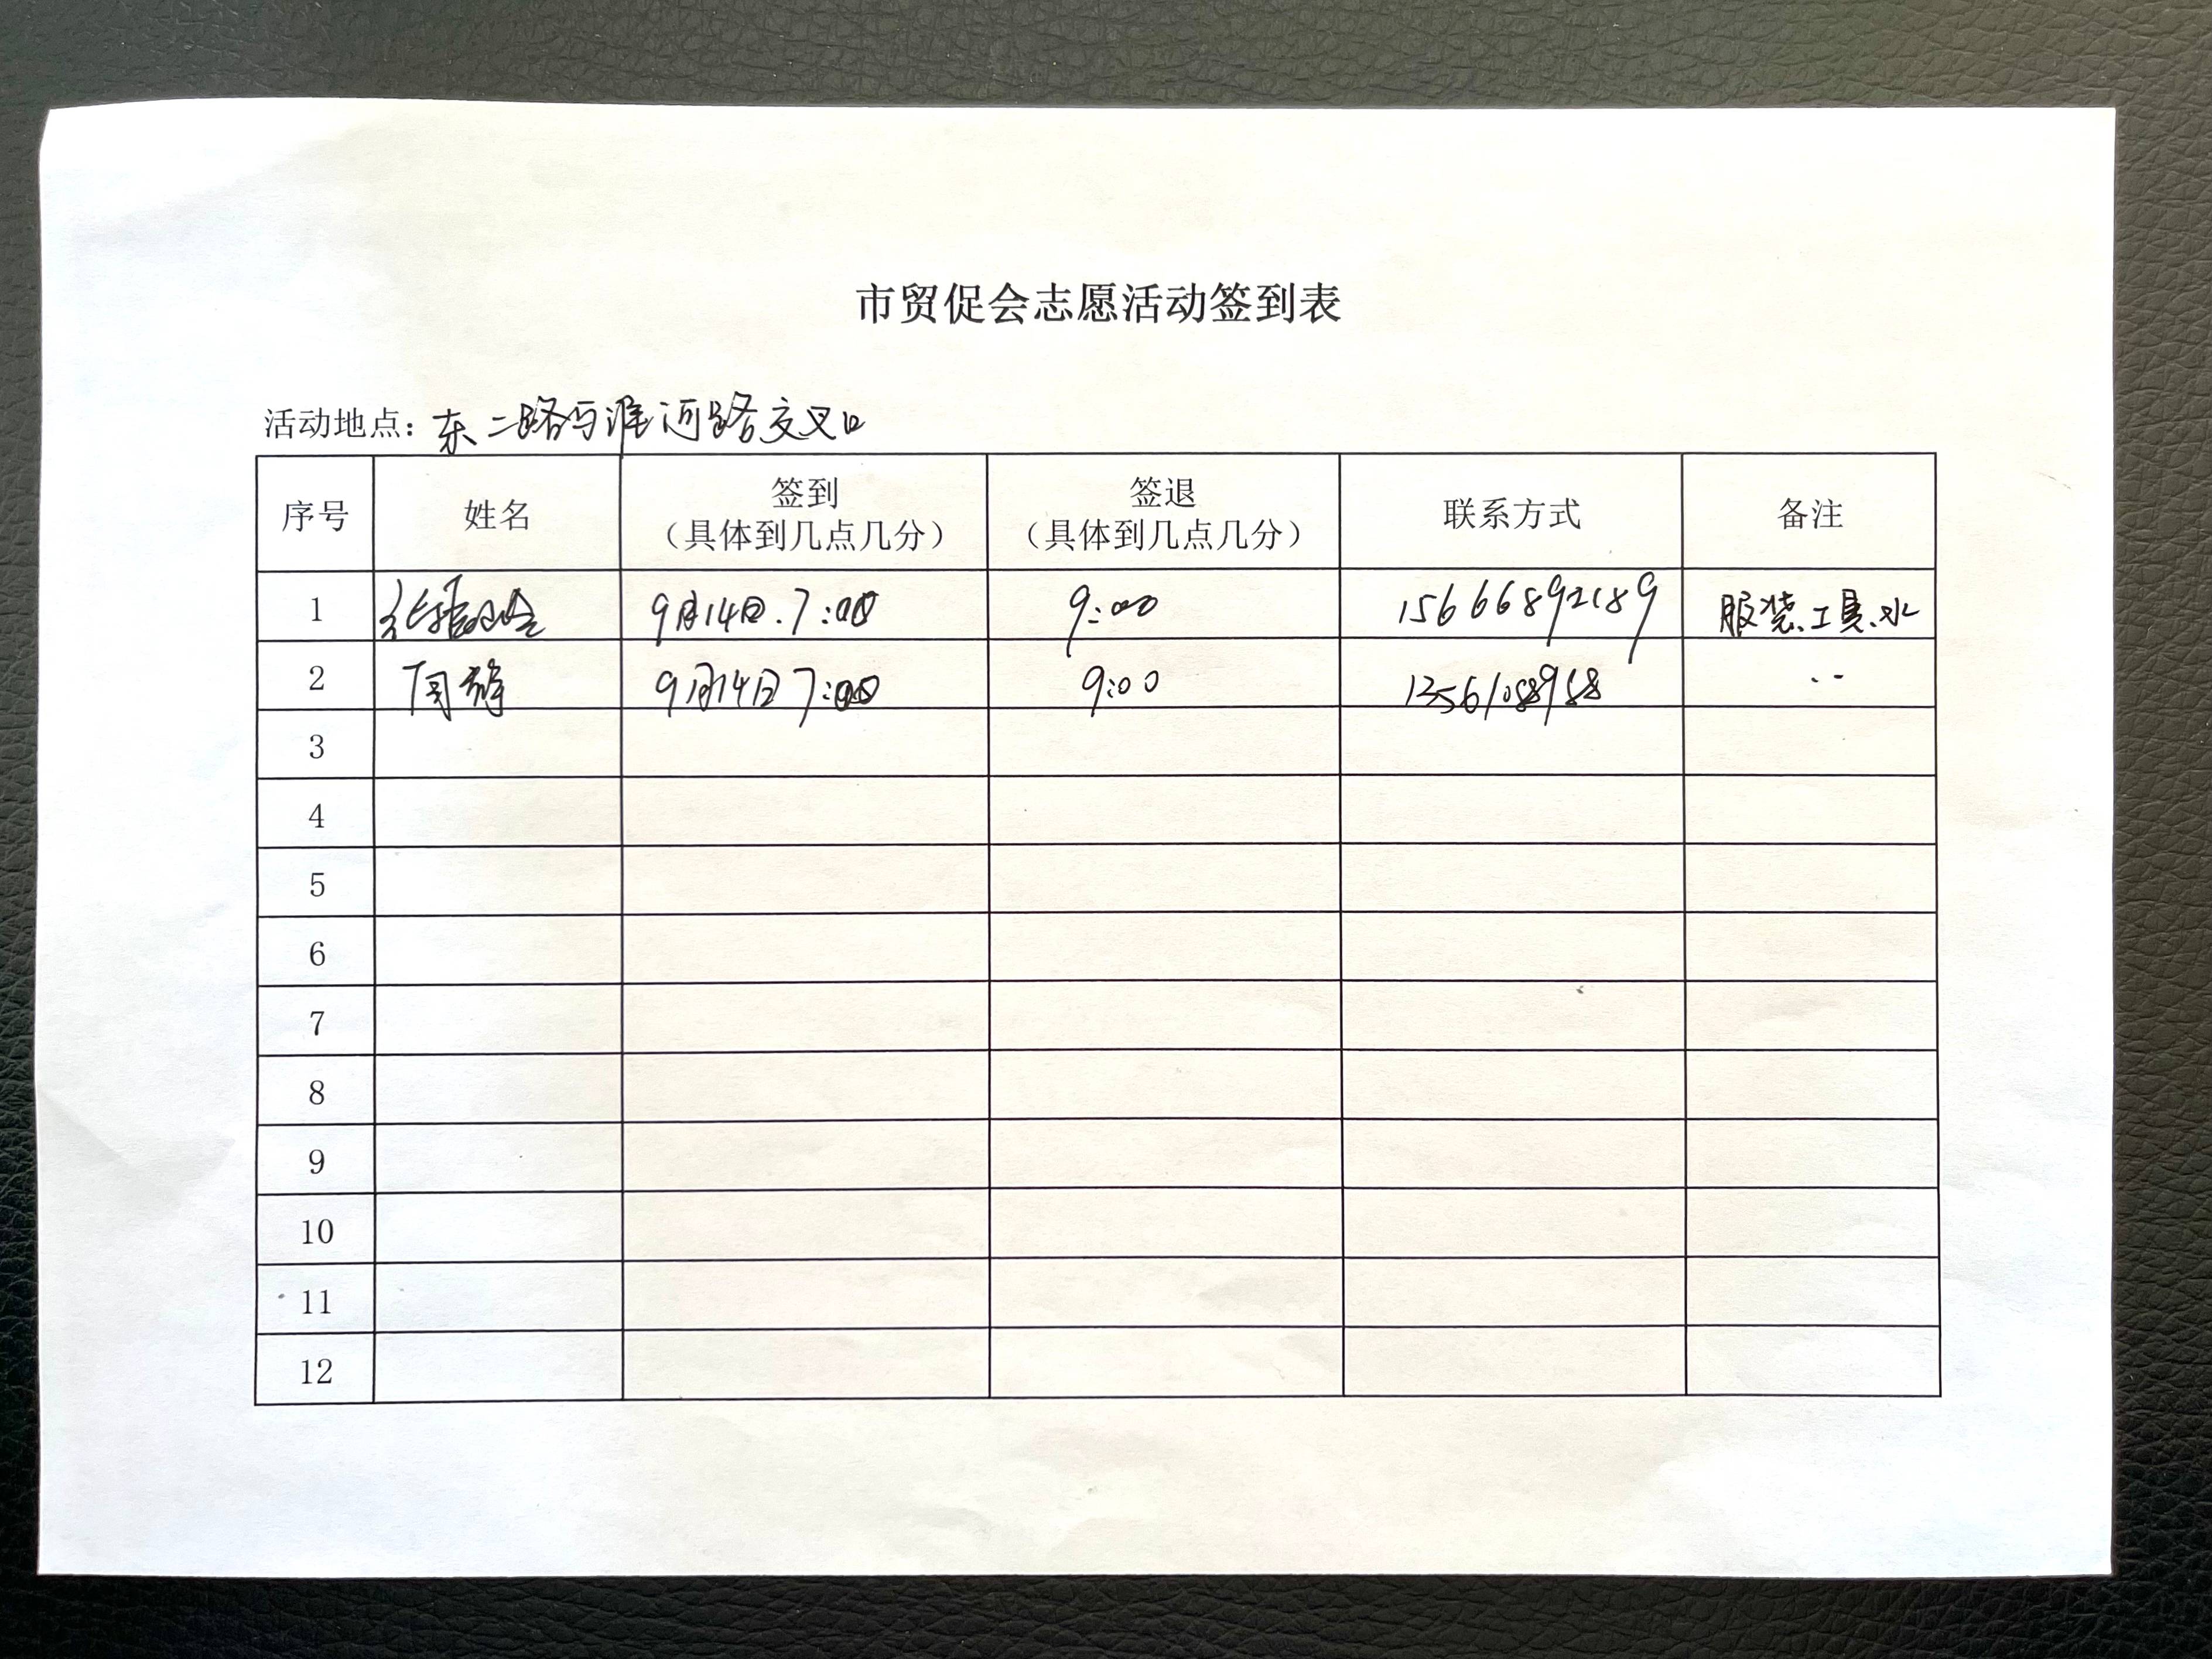 市贸促会志愿活动签到表
活动地点：东二路与淮河路交叉口
序号 姓名 签到（具体到几点几分） 签退（具体到几点几分） 联系方式 备注
1 9月14日.7:00 9:00 15666892189 服装、工具、水
2 周静 9月14日7:00 9:00 13561088988
3
4
5
6
7
8
9
10
11
12